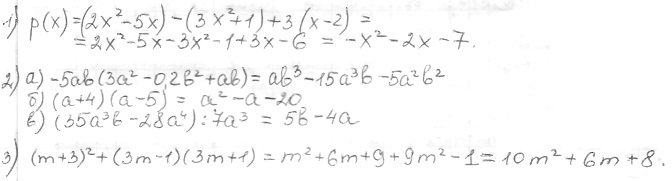 1) p(x)=(2x²-5x)-(3x²+1)+3(x-2) =
=2x²-5x-3x²-1+3x-6 = -x²-2x-7.
2) а) -5ab(3a²-0,2b²+ab)= ab³-15a³b-5a²b²
б) (a+4)(a-5) = a²-a-20
в) (35a³b-28a⁴):7a³ = 5b-4a
3) (m+3)²+(3m-1)(3m+1)=m²+6m+9+9m²-1=10m²+6m+8.